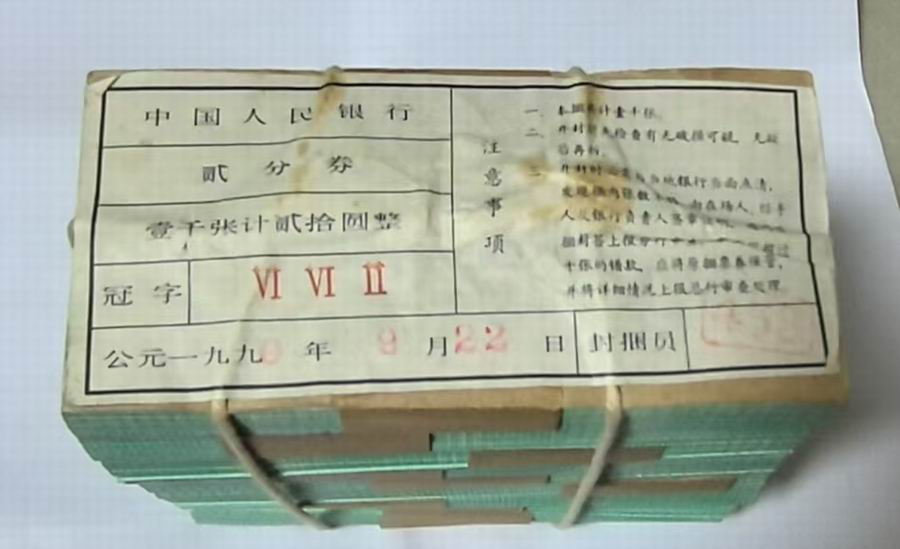 中国人民银行
贰分券
壹千张计贰拾圆整
冠字 VI VI II
公元一九九 年 9 月 22 日 封捆员
注意事项
一、本捆共计壹千张。
二、开封前先检查有无破损可疑，无疑
后再拆。
开封时 当地银行当面点清，
发现捆内张数 在场人、经手
人及银行负责人签章
捆封签上报分行
十张的错款，应将原捆票券保管，
并将详细情况上报总行审查处理